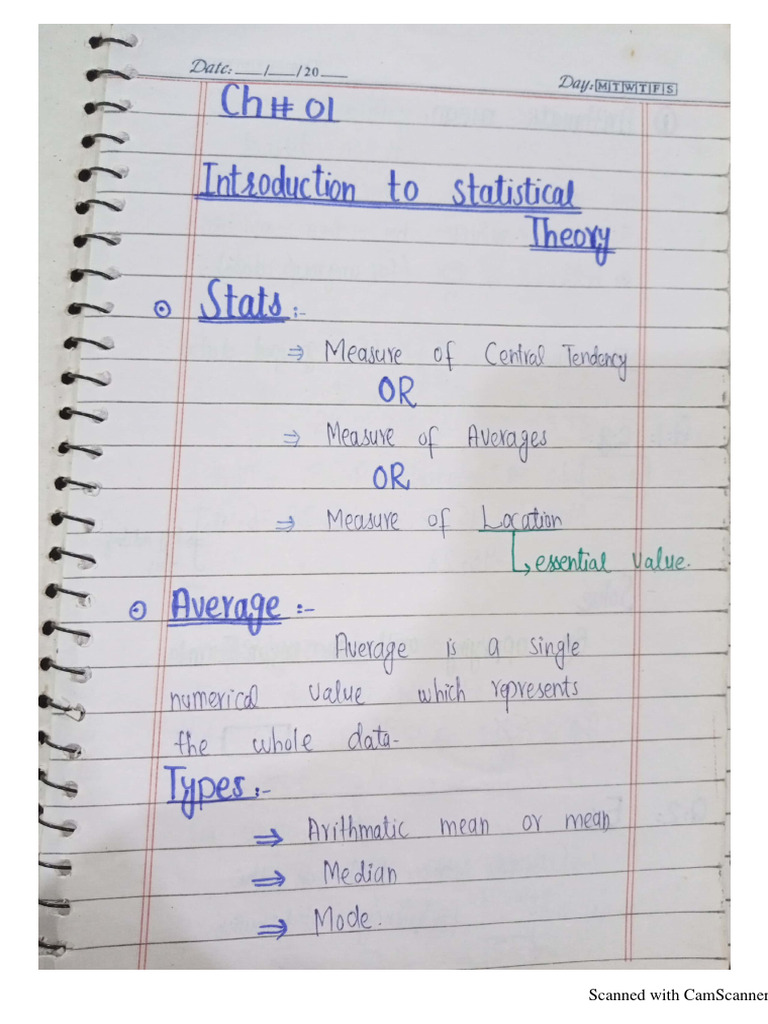 Date: ___/___/20___
Day: M T W T F S
Ch # 01
Introduction to statistical
Theory
Stats :-
⇒ Measure of Central Tendency
OR
⇒ Measure of Averages
OR
⇒ Measure of Location
↳ essential value.
Average :-
Average is a single
numerical value which represents
the whole data-
Types :-
⇒ Arithmatic mean or mean
⇒ Median
⇒ Mode.
Scanned with CamScanner